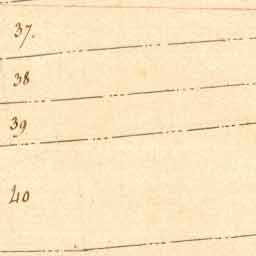 37.
38
39
40